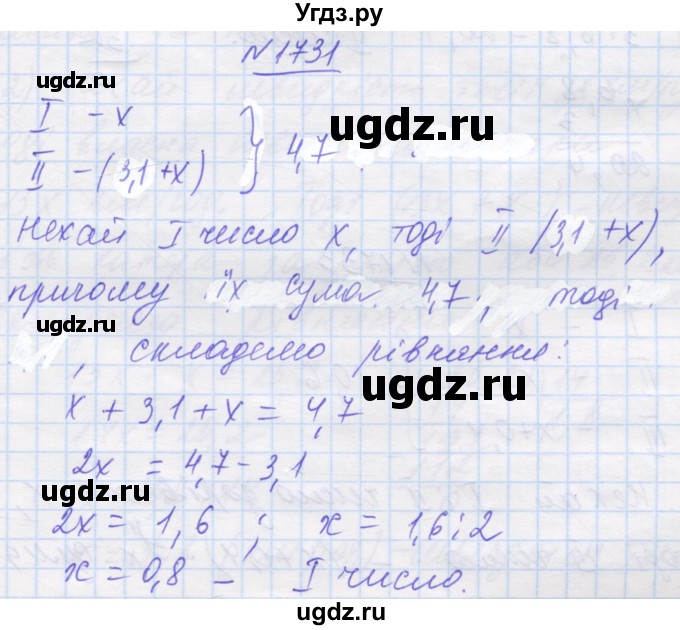 Угдз.ру
N 1731
I – x
II – (3,1 + x) } 4,7
Нехай I число x, тоді II (3,1 + x),
причому їх сума 4,7, тоді
, складемо рівняння:
x + 3,1 + x = 4,7
2x = 4,7 - 3,1
2x = 1,6 ; x = 1,6 : 2
x = 0,8 – I число.
ugdz.ru
ugdz.ru
ugdz.ru
ugdz.ru
ugdz.ru
ugdz.ru
ugdz.ru
ugdz.ru